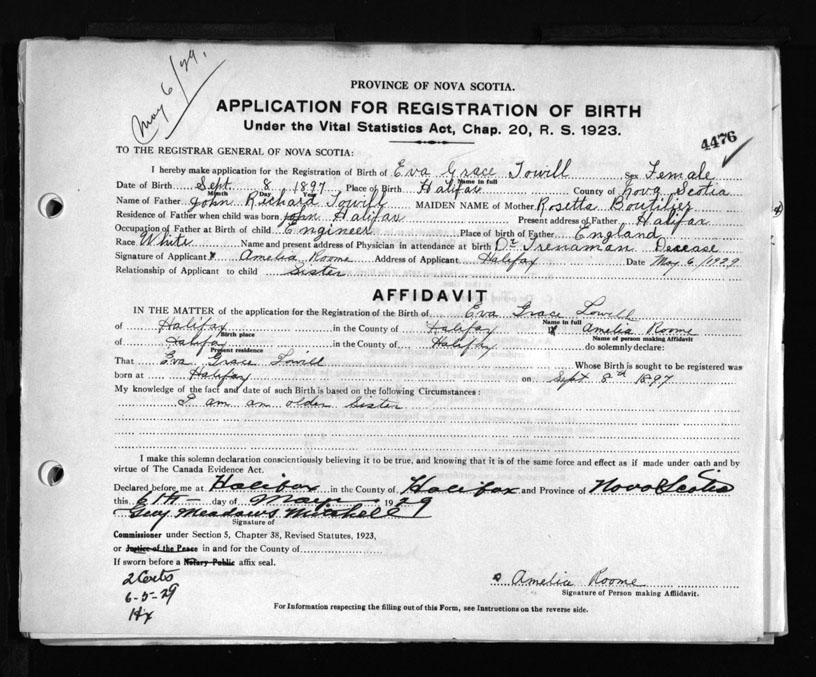 May 6/29.
PROVINCE OF NOVA SCOTIA.
APPLICATION FOR REGISTRATION OF BIRTH
Under the Vital Statistics Act, Chap. 20, R. S. 1923.
4476
TO THE REGISTRAR GENERAL OF NOVA SCOTIA:
I hereby make application for the Registration of Birth of Eva Grace Towill Sex Female
Name in full
Date of Birth Sept. 8 1897 Place of Birth Halifax County of Nova Scotia
Month Day Year
Name of Father John Richard Towill MAIDEN NAME of Mother Rosetta Boutilier
Residence of Father when child was born in Halifax Present address of Father Halifax
Occupation of Father at Birth of child Engineer Place of birth of Father England
Race White Name and present address of Physician in attendance at birth Dr Trenaman Decease
Signature of Applicant Amelia Roome Address of Applicant Halifax Date May 6/1929
Relationship of Applicant to child Sister
AFFIDAVIT
IN THE MATTER of the application for the Registration of Birth of Eva Grace Towill
Name in full
of Halifax in the County of Halifax I Amelia Roome
Birth place Name of person making Affidavit
of Halifax in the County of Halifax do solemnly declare:
Present residence
That Eva Grace Towill Whose Birth is sought to be registered was
born at Halifax on Sept 8th 1897
My knowledge of the fact and date of such Birth is based on the following Circumstances:
I am an older Sister
I make this solemn declaration conscientiously believing it to be true, and knowing that it is of the same force and effect as if made under oath and by
virtue of The Canada Evidence Act.
Declared before me at Halifax in the County of Halifax and Province of Nova Scotia
this 6th day of May 1929
Guy Meadows Mitchell
Signature of
Commissioner under Section 5, Chapter 38, Revised Statutes, 1923,
or Justice of the Peace in and for the County of
If sworn before a Notary Public affix seal.
2 Certs
6-5-29
Hx
Amelia Roome
Signature of Person making Affidavit.
For Information respecting the filling out of this Form, see Instructions on the reverse side.